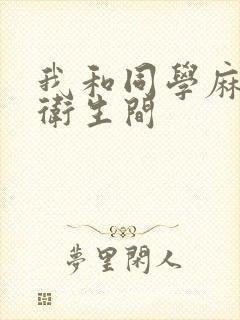 我和同學麻
衛生間
夢里閑人